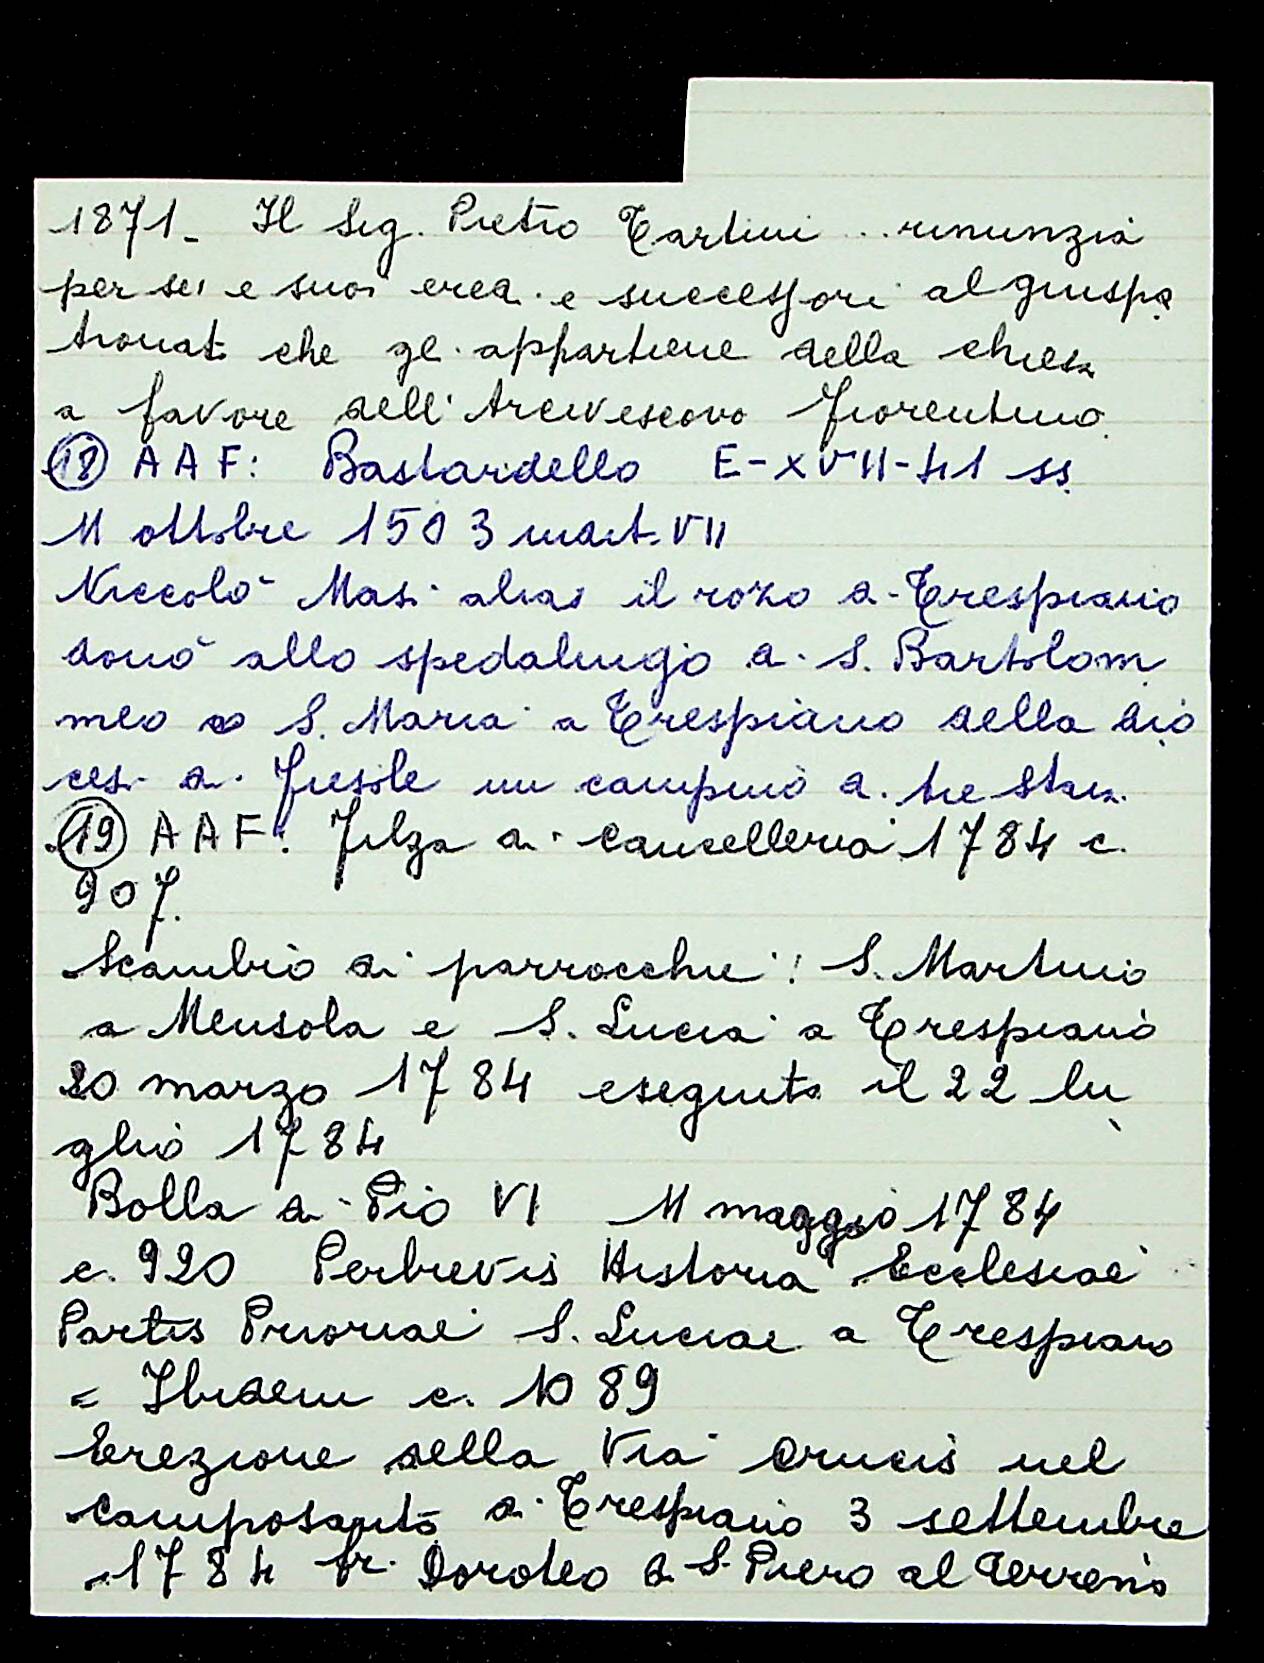 1871- Il Sig. Pietro Tartini .. rinunzia
per sè e suoi eredi e successori al giuspa
tronato che gli appartiene della chiesa
a favore dell'Arcivescovo fiorentino.
18 AAF: Bastardello E-XVII-41 ss.
11 ottobre 1503 indict. VII
Niccolò Masi alias il rozo di Trespiano
donò allo spedalingo di S. Bartolom
meo o S. Maria a Trespiano della dio
cesi di Fiesole un campino di tre staia.
19 AAF: Filza di Cancelleria 1784 c.
907.
Scambio di parrocchie: S. Martino
a Mensola e S. Lucia a Trespiano
20 marzo 1784 eseguito il 22 lu
glio 1784
Bolla di Pio VI 11 maggio 1784
c. 920 Perbrevis Historia Ecclesiae
Partis Prioriae S. Luciae a Trespiano
= Ibidem c. 1089
Erezione della Via Crucis nel
camposanto di Trespiano 3 settembre
1784 fr. Doroteo di S. Piero al Terreno